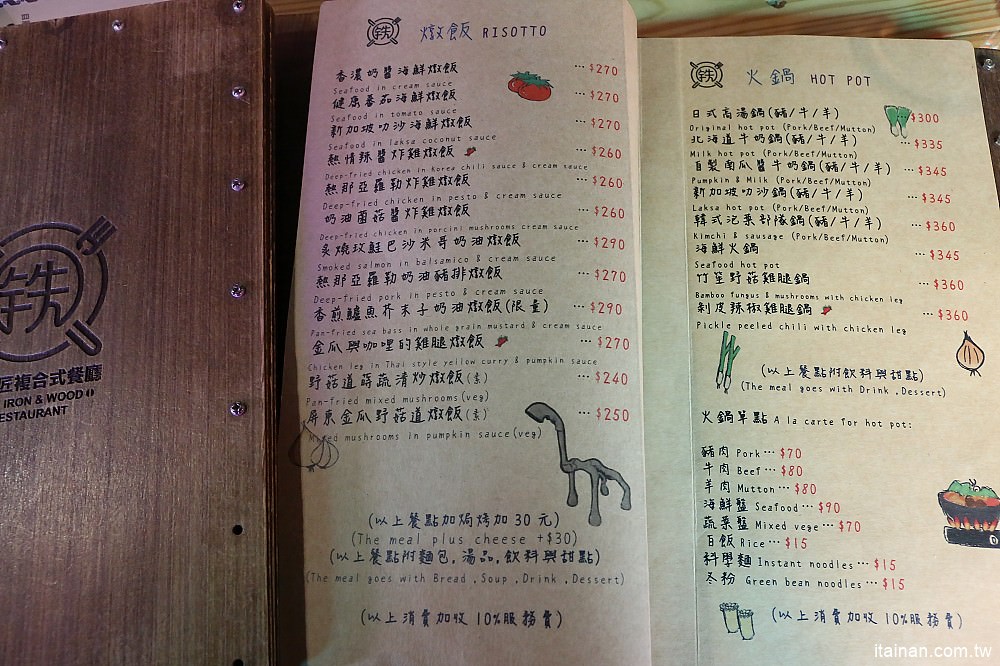 匠複合式餐廳
IRON & WOOD
RESTAURANT
鉄 燉飯 RISOTTO
香濃奶醬海鮮燉飯 …$270
Seafood in cream sauce
健康蕃茄海鮮燉飯 …$270
Seafood in tomato sauce
新加坡叻沙海鮮燉飯 …$270
Seafood in laksa coconut sauce
熱情辣醬炸雞燉飯 …$260
Deep-fried chicken in Korea chili sauce & cream sauce
熱那亞羅勒炸雞燉飯 …$260
Deep-fried chicken in pesto & cream sauce
奶油菌菇醬炸雞燉飯 …$260
Deep-fried chicken in porcini mushrooms cream sauce
炙燒玫鮭巴沙米哥奶油燉飯 …$290
Smoked salmon in balsamico & cream sauce
熱那亞羅勒奶油豬排燉飯 …$270
Deep-fried pork in pesto & cream sauce
香煎鱸魚芥末子奶油燉飯(限量) …$290
Pan-fried sea bass in whole grain mustard & cream sauce
金瓜與咖哩的雞腿燉飯 …$270
Chicken leg in Thai style yellow curry & pumpkin sauce
野菇道蒔蔬清炒燉飯(素) …$240
Pan-fried mixed mushrooms(veg)
屏東金瓜野菇道燉飯(素) …$250
Mixed mushrooms in pumpkin sauce(veg)
(以上餐點加焗烤加 30 元)
(The meal plus cheese +$30)
(以上餐點附麵包,湯品,飲料與甜點)
(The meal goes with Bread ,Soup ,Drink ,Dessert)
(以上消費加收 10%服務費)
鉄 火鍋 HOT POT
日式高湯鍋(豬/牛/羊) …$300
Original hot pot (Pork/Beef/Mutton)
北海道牛奶鍋(豬/牛/羊) …$335
Milk hot pot (Pork/Beef/Mutton)
自製南瓜醬牛奶鍋(豬/牛/羊) …$345
Pumpkin & Milk (Pork/Beef/Mutton)
新加坡叻沙鍋(豬/牛/羊) …$345
Laksa hot pot (Pork/Beef/Mutton)
韓式泡菜部隊鍋(豬/牛/羊) …$360
Kimchi & sausage (Pork/Beef/Mutton)
海鮮火鍋 …$345
Seafood hot pot
竹笙野菇雞腿鍋 …$360
Bamboo fungus & mushrooms with chicken leg
剝皮辣椒雞腿鍋 …$360
Pickle peeled chili with chicken leg
(以上餐點附飲料與甜點)
(The meal goes with Drink ,Dessert)
火鍋單點 A la carte for hot pot:
豬肉 Pork…$70
牛肉 Beef…$80
羊肉 Mutton…$80
海鮮盤 Seafood…$90
蔬菜盤 Mixed vege…$70
白飯 Rice…$15
科學麵 Instant noodles…$15
冬粉 Green bean noodles…$15
(以上消費加收 10%服務費)
itainan.com.tw